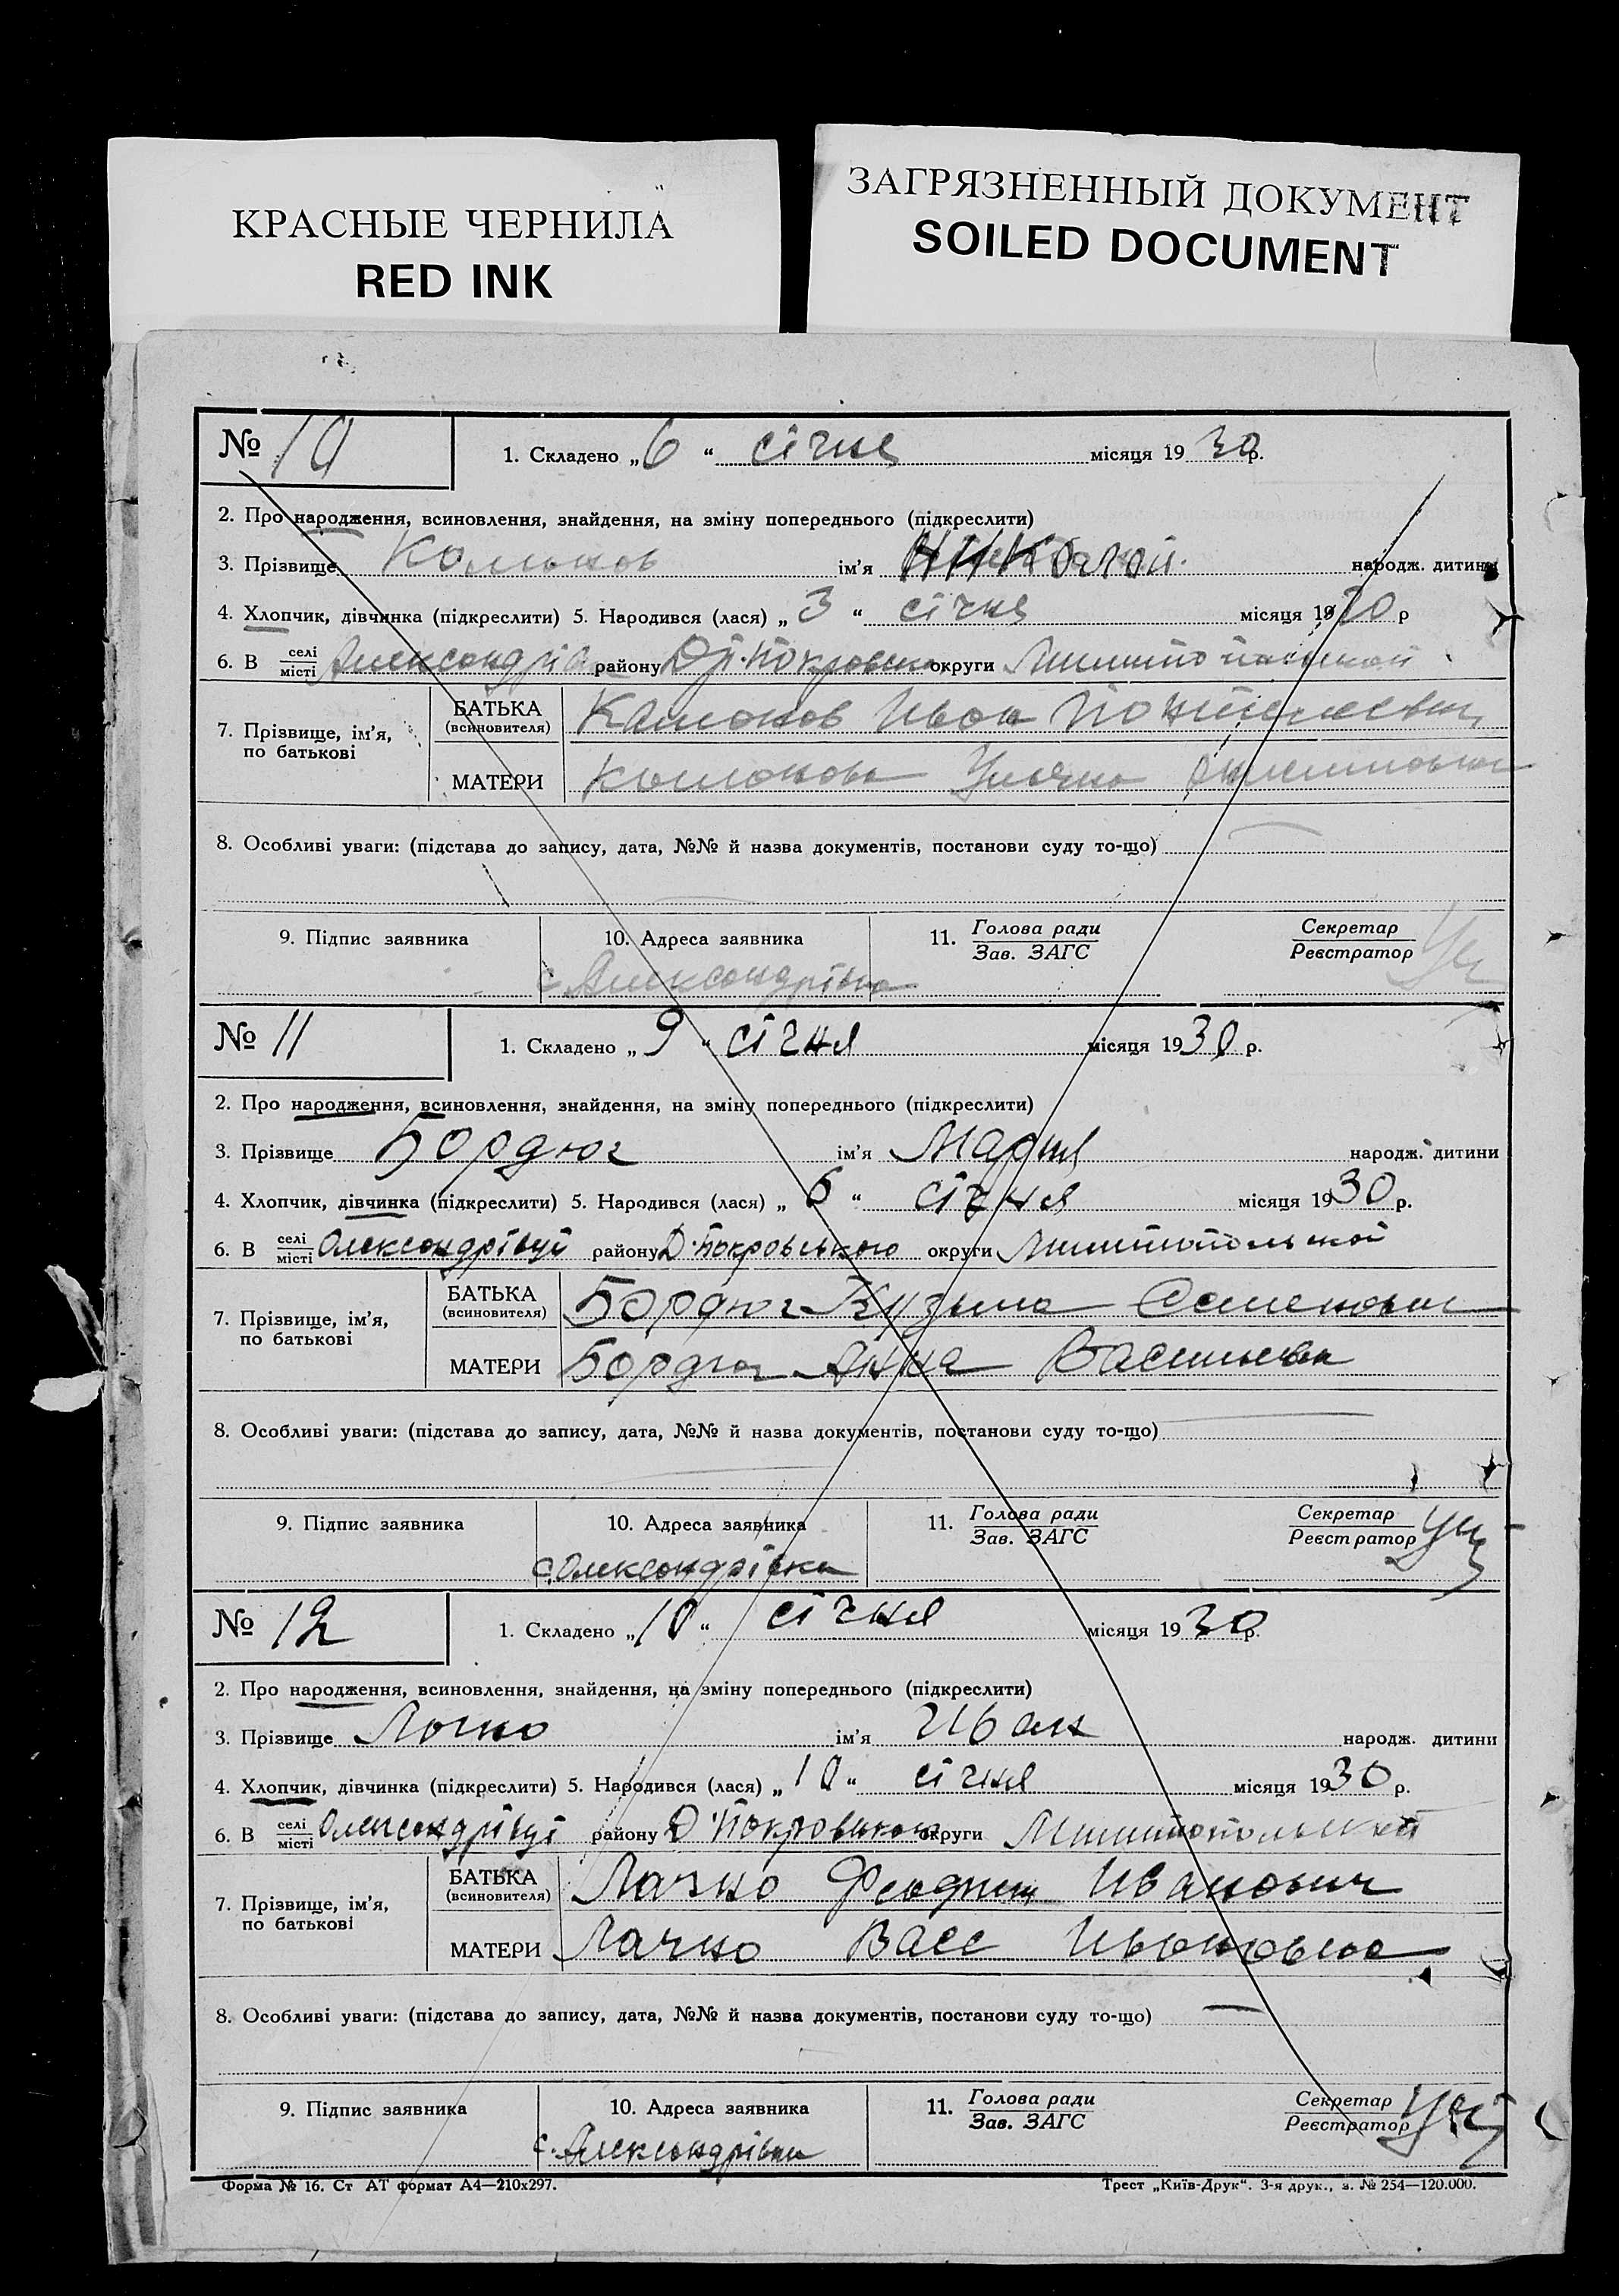 КРАСНЫЕ ЧЕРНИЛА
RED INK
ЗАГРЯЗНЕННЫЙ ДОКУМЕНТ
SOILED DOCUMENT
№ 10 1. Складено „6“ січня місяця 1930 р.
2. Про народження, всиновлення, знайдення, на зміну попереднього (підкреслити)
3. Прізвище ім'я Николай народж. дитини
4. Хлопчик, дівчинка (підкреслити) 5. Народився (лася) „3“ січня місяця 1930 р
6. В селі/місті району округи
7. Прізвище, ім'я, по батькові
БАТЬКА (всиновителя) Иван
МАТЕРИ
8. Особливі уваги: (підстава до запису, дата, №№ й назва документів, постанови суду то-що)
9. Підпис заявника 10. Адреса заявника 11. Голова ради/Зав. ЗАГС Секретар/Реєстратор
с. Александрівка
№ 11 1. Складено „9“ січня місяця 1930 р.
2. Про народження, всиновлення, знайдення, на зміну попереднього (підкреслити)
3. Прізвище Бордюг ім'я Мария народж. дитини
4. Хлопчик, дівчинка (підкреслити) 5. Народився (лася) „6“ січня місяця 1930 р.
6. В селі/місті Олександрівці району Д-Покровського округи
7. Прізвище, ім'я, по батькові
БАТЬКА (всиновителя) Бордюг Кузьма Семенович
МАТЕРИ Бордюг Анна Васильевна
8. Особливі уваги: (підстава до запису, дата, №№ й назва документів, постанови суду то-що)
9. Підпис заявника 10. Адреса заявника 11. Голова ради/Зав. ЗАГС Секретар/Реєстратор
с. Олександрівка
№ 12 1. Складено „10“ січня місяця 1930 р.
2. Про народження, всиновлення, знайдення, на зміну попереднього (підкреслити)
3. Прізвище ім'я Иван народж. дитини
4. Хлопчик, дівчинка (підкреслити) 5. Народився (лася) „10“ січня місяця 1930 р.
6. В селі/місті Олександрівці району Д-Покровського округи
7. Прізвище, ім'я, по батькові
БАТЬКА (всиновителя) Лачко Иванович
МАТЕРИ Лачко Васс Ивановна
8. Особливі уваги: (підстава до запису, дата, №№ й назва документів, постанови суду то-що)
9. Підпис заявника 10. Адреса заявника 11. Голова ради/Зав. ЗАГС Секретар/Реєстратор
с. Александрівка
Форма № 16. Ст АТ формат А4—210х297. Трест „Київ-Друк“. 3-я друк., з. № 254—120.000.